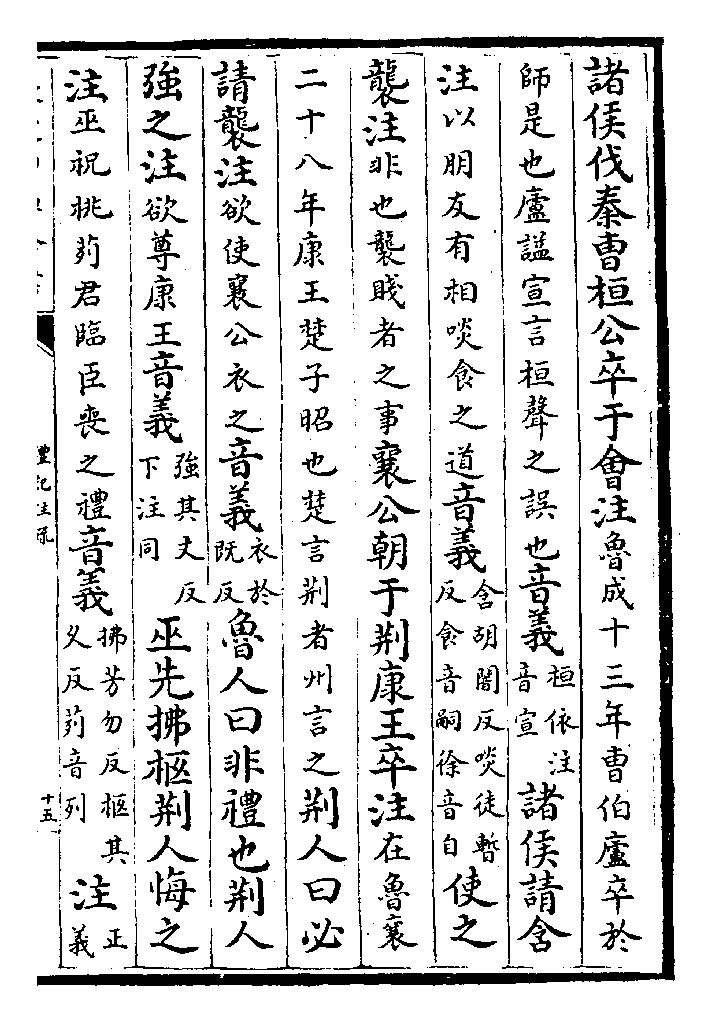 諸侯伐秦曹桓公卒于會注魯成十三年曹伯廬卒於
師是也廬諡宣言桓聲之誤也音義桓依注音宣諸侯請含
注以朋友有相啖食之道音義含胡闇反啖徒暫反食音嗣徐音自使之
襲注非也襲賤者之事襄公朝于荆康王卒注在魯襄
二十八年康王楚子昭也楚言荆者州言之荆人曰必
請襲注欲使襄公衣之音義衣於既反魯人曰非禮也荆人
強之注欲尊康王音義強其丈反下注同巫先拂柩荆人悔之
注巫祝桃茢君臨臣喪之禮音義拂芳勿反柩其久反茢音列注正義
禮記注疏
十五